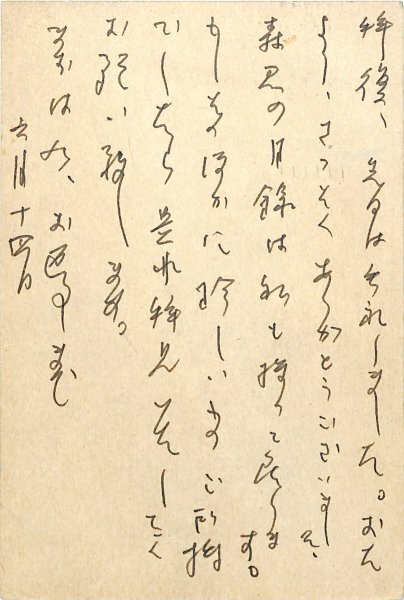 拝復、先日は失礼しました。おた
より、さつそくありがとうございました、
森君の目録は私も持つて居ります。
もしそのほかに珍しいものご所持
でしたら是非拝見いたしたく
お願い致します。
まずは右、お返事まで
六月十四日